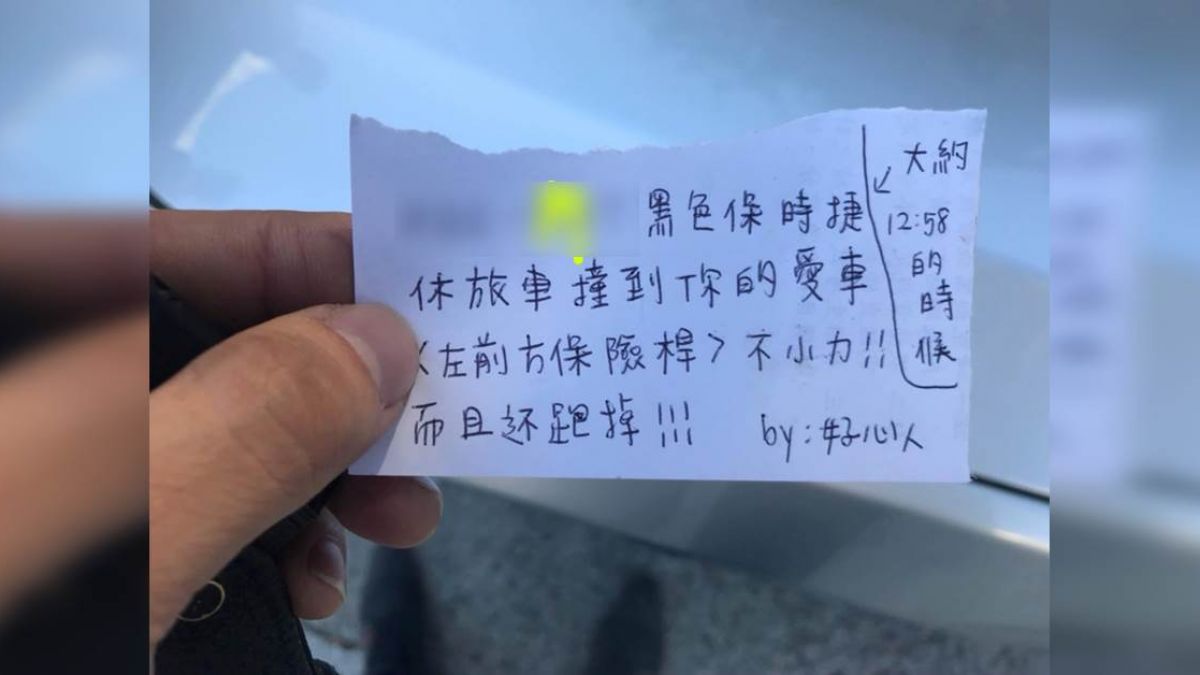 黑色保時捷
休旅車撞到你的愛車
<左前方保險桿> 不小力!!
而且还跑掉!!!
by:好心人
大約
12:58
的
時
候